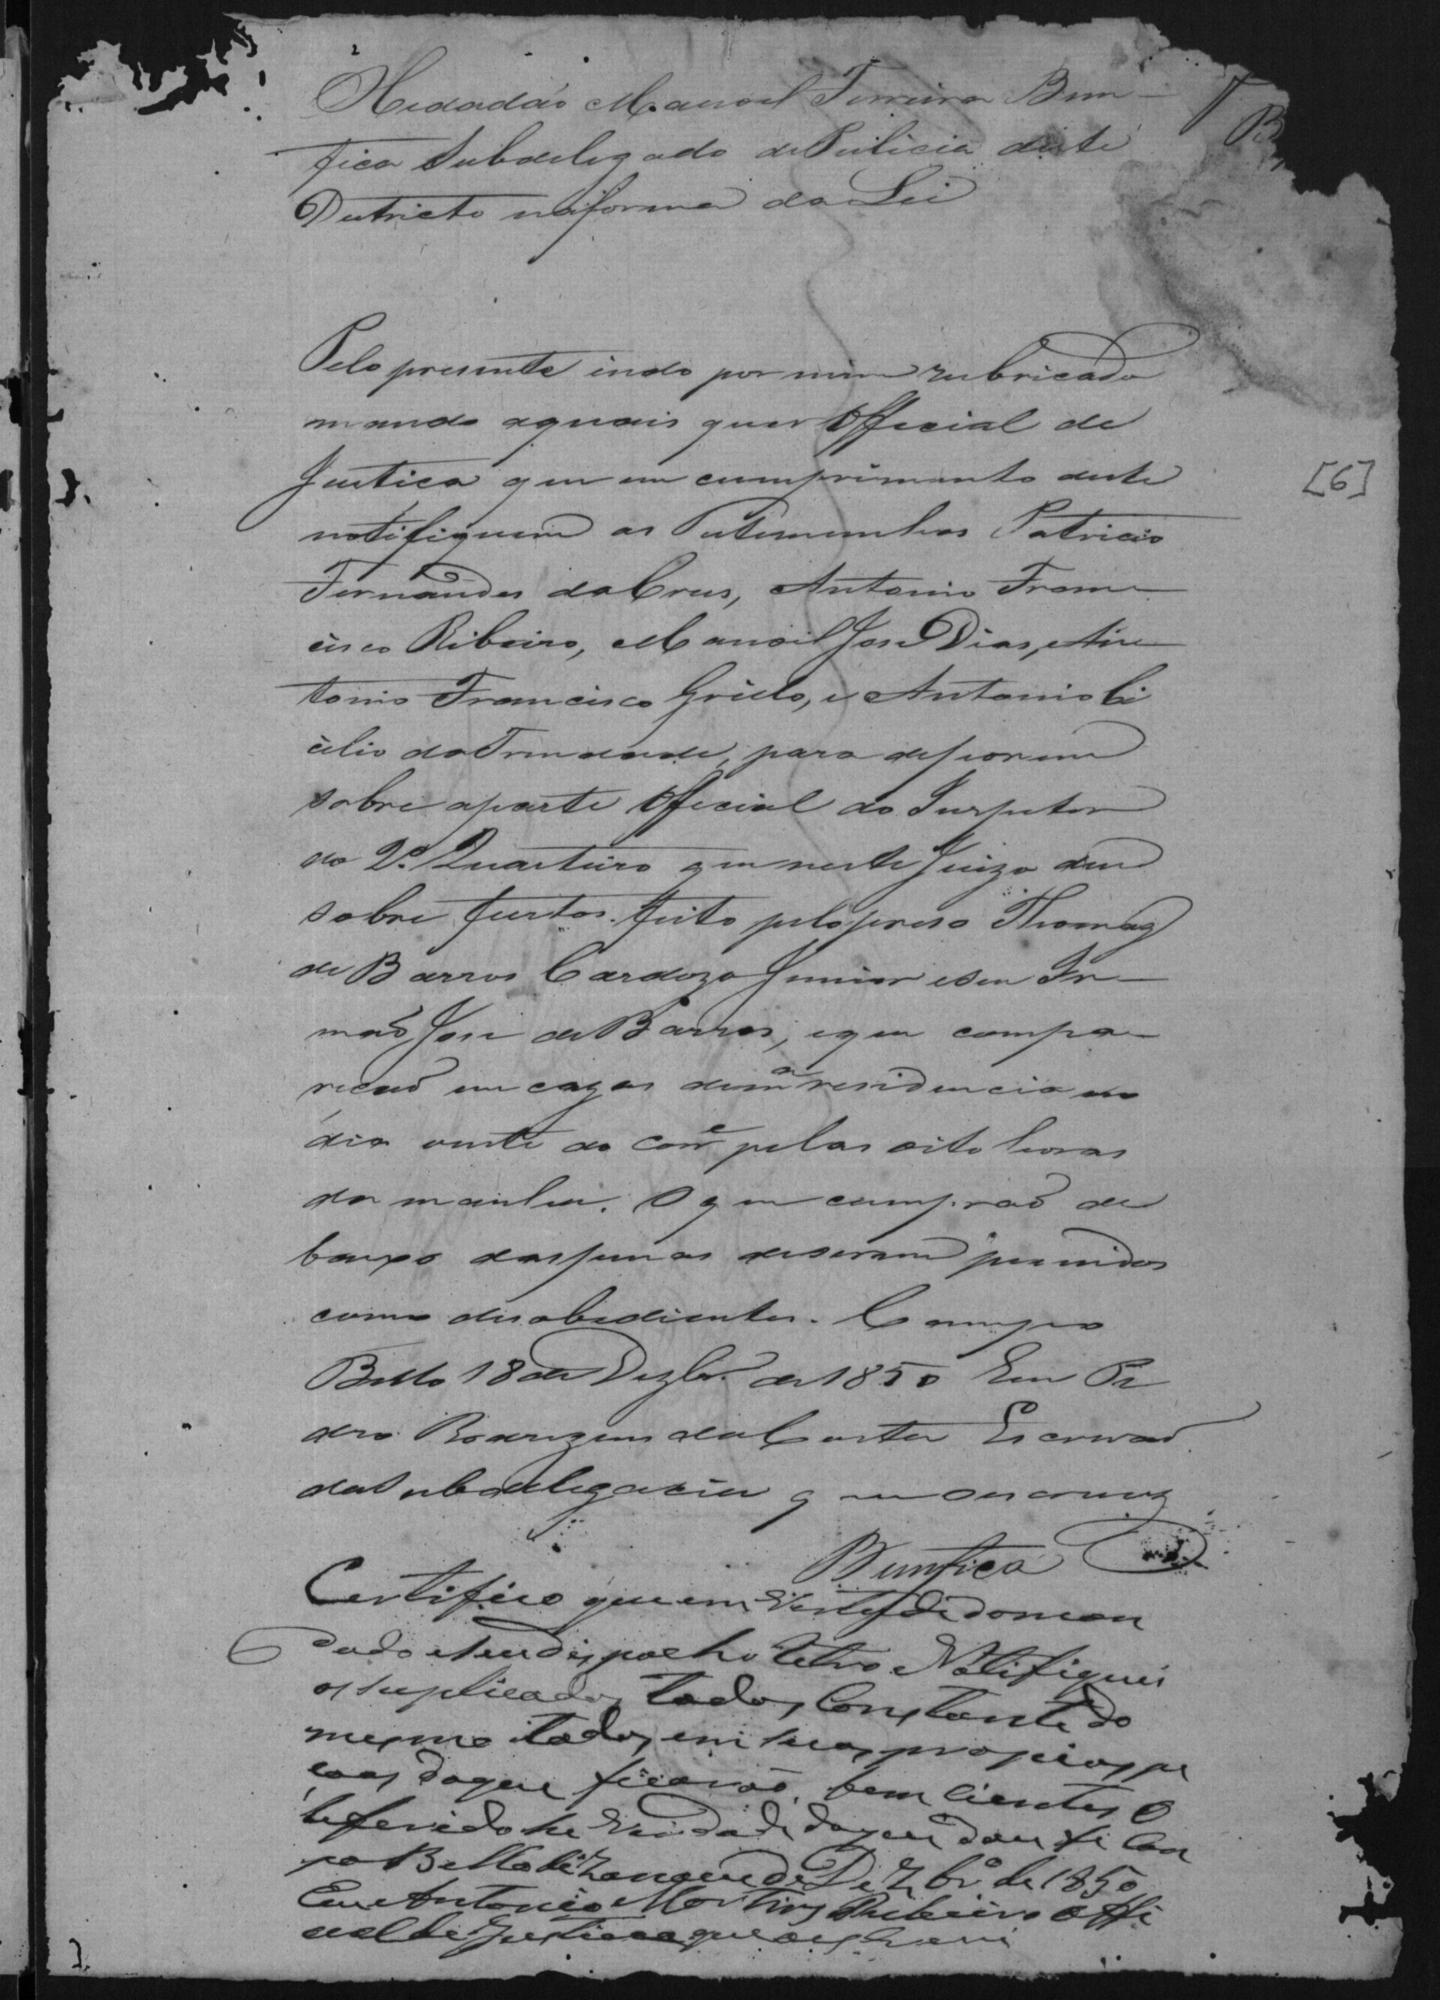 O Cidadão Manoel Ferreira Bem
fica Subdelegado de Policia deste
Destricto naforma da Lei
Pelo presente indo por mim rubricado
mando aquais quer Official de
Justica que em cumprimento deste
notifiquem as Testemunhas Patricio
Fernandes da Crus, Antonio Fran
cisco Ribeiro, Manoil Jose Dias, An
tonio Francisco Grilo, e Antonio Ci
cilio da Trindade, para deporem
sobre aparte Official do Inspetor
do 2º Quarteiro que neste Juizo deu
sobre furtos feito pelo preso Thomaz
de Barros Cardozo Junior e seu Ir
mão Jose de Barros, e que compa
recaõ em cazas de mª residencia no
dia vinte do corrᵉ pelas oito horas
da manha. O que cumpraõ de
baixo das penas de serem punidos
como desobedientes. Campo
Bello 18 de Dezbrº de 1850 Eu Pe
dro Rodrigues da Costa Escrivaõ
da Subdelegacia que o escrevy
Bemfica
Certifico que em Virtude do man
dado e seu despacho retro Notifiquei
os suplicados todos Constante do
mesmo todos em suas proprias pe
coas do que ficaraõ bem cientes O
referido he Verdade do que dou fé Cam
po Bello dezanove de Dezbrº de 1850
Eu Antonio Martins Ribeiro Offi
cial de Justica que o escrevi
[6]